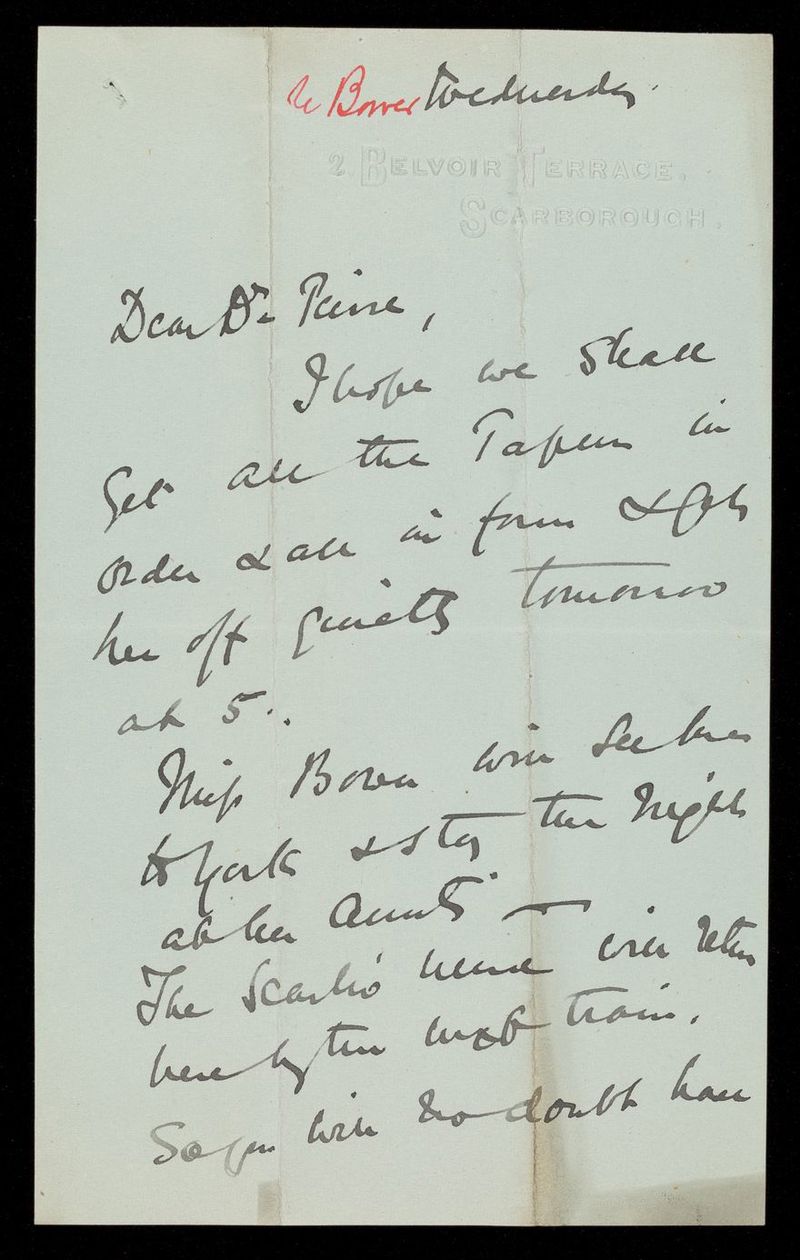 re Bower Wednesday.
2. BELVOIR TERRACE.
SCARBOROUGH.
Dear Dr Pierce,
I hope we shall
Get all the Papers in
order & all in form & Get
her off quietly tomorrow
at 5.
Miss Bower will see her
to York & stay the Night
at her Aunts' —
The Scarbro' nurse will return
here by the next train.
So you will no doubt have